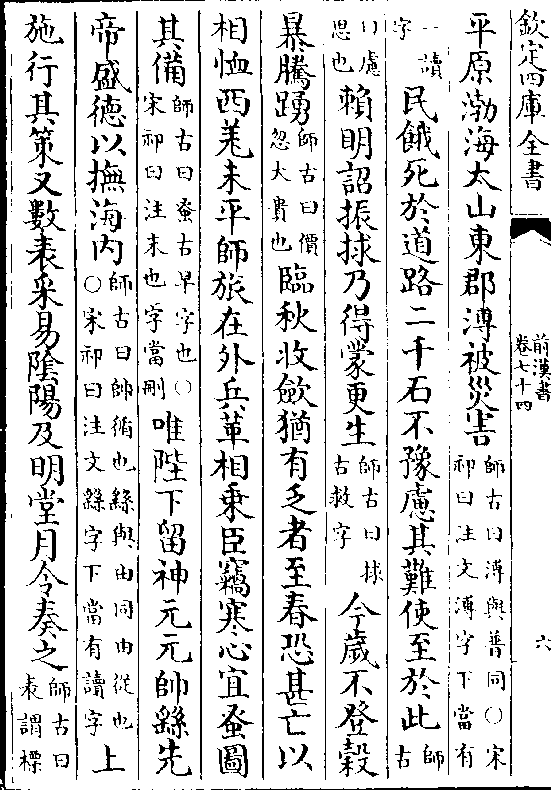 欽定四庫全書
前漢書
卷七十四
六
平原渤海太山東郡溥被災害師古曰溥與普同○宋祁曰注文溥字下當有
一讀字民餓死於道路二千石不豫慮其難使至於此師古
曰慮思也賴明詔振捄乃得蒙更生師古曰捄古救字今歲不登穀
暴騰踴師古曰價忽大貴也臨秋收斂猶有乏者至春恐甚亡以
相恤西羌未平師旅在外兵革相乗臣竊寒心宜蚤圖
其備師古曰蚤古早字也○宋祁曰注末也字當刪唯陛下留神元元帥繇先
帝盛德以撫海内師古曰帥循也繇與由同由從也○宋祁曰注文繇字下當有讀字上
施行其策又數表采易隂陽及明堂月令奏之師古曰表謂標